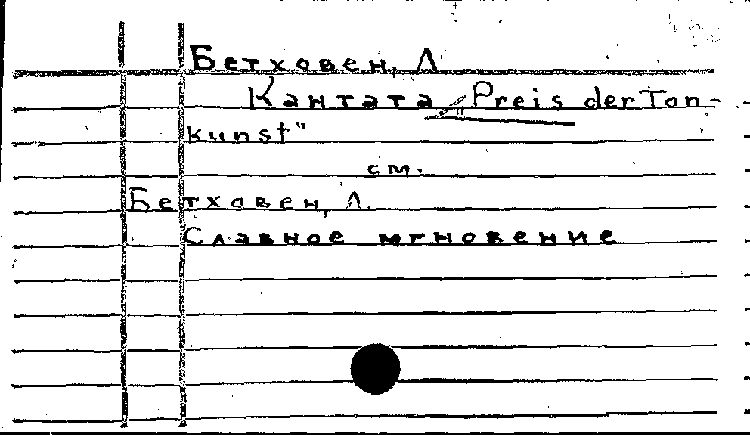 Бетховен, Л
Кантата „Preis der Ton-
kunst"
см.
Бетховен, Л.
Славное мгновение